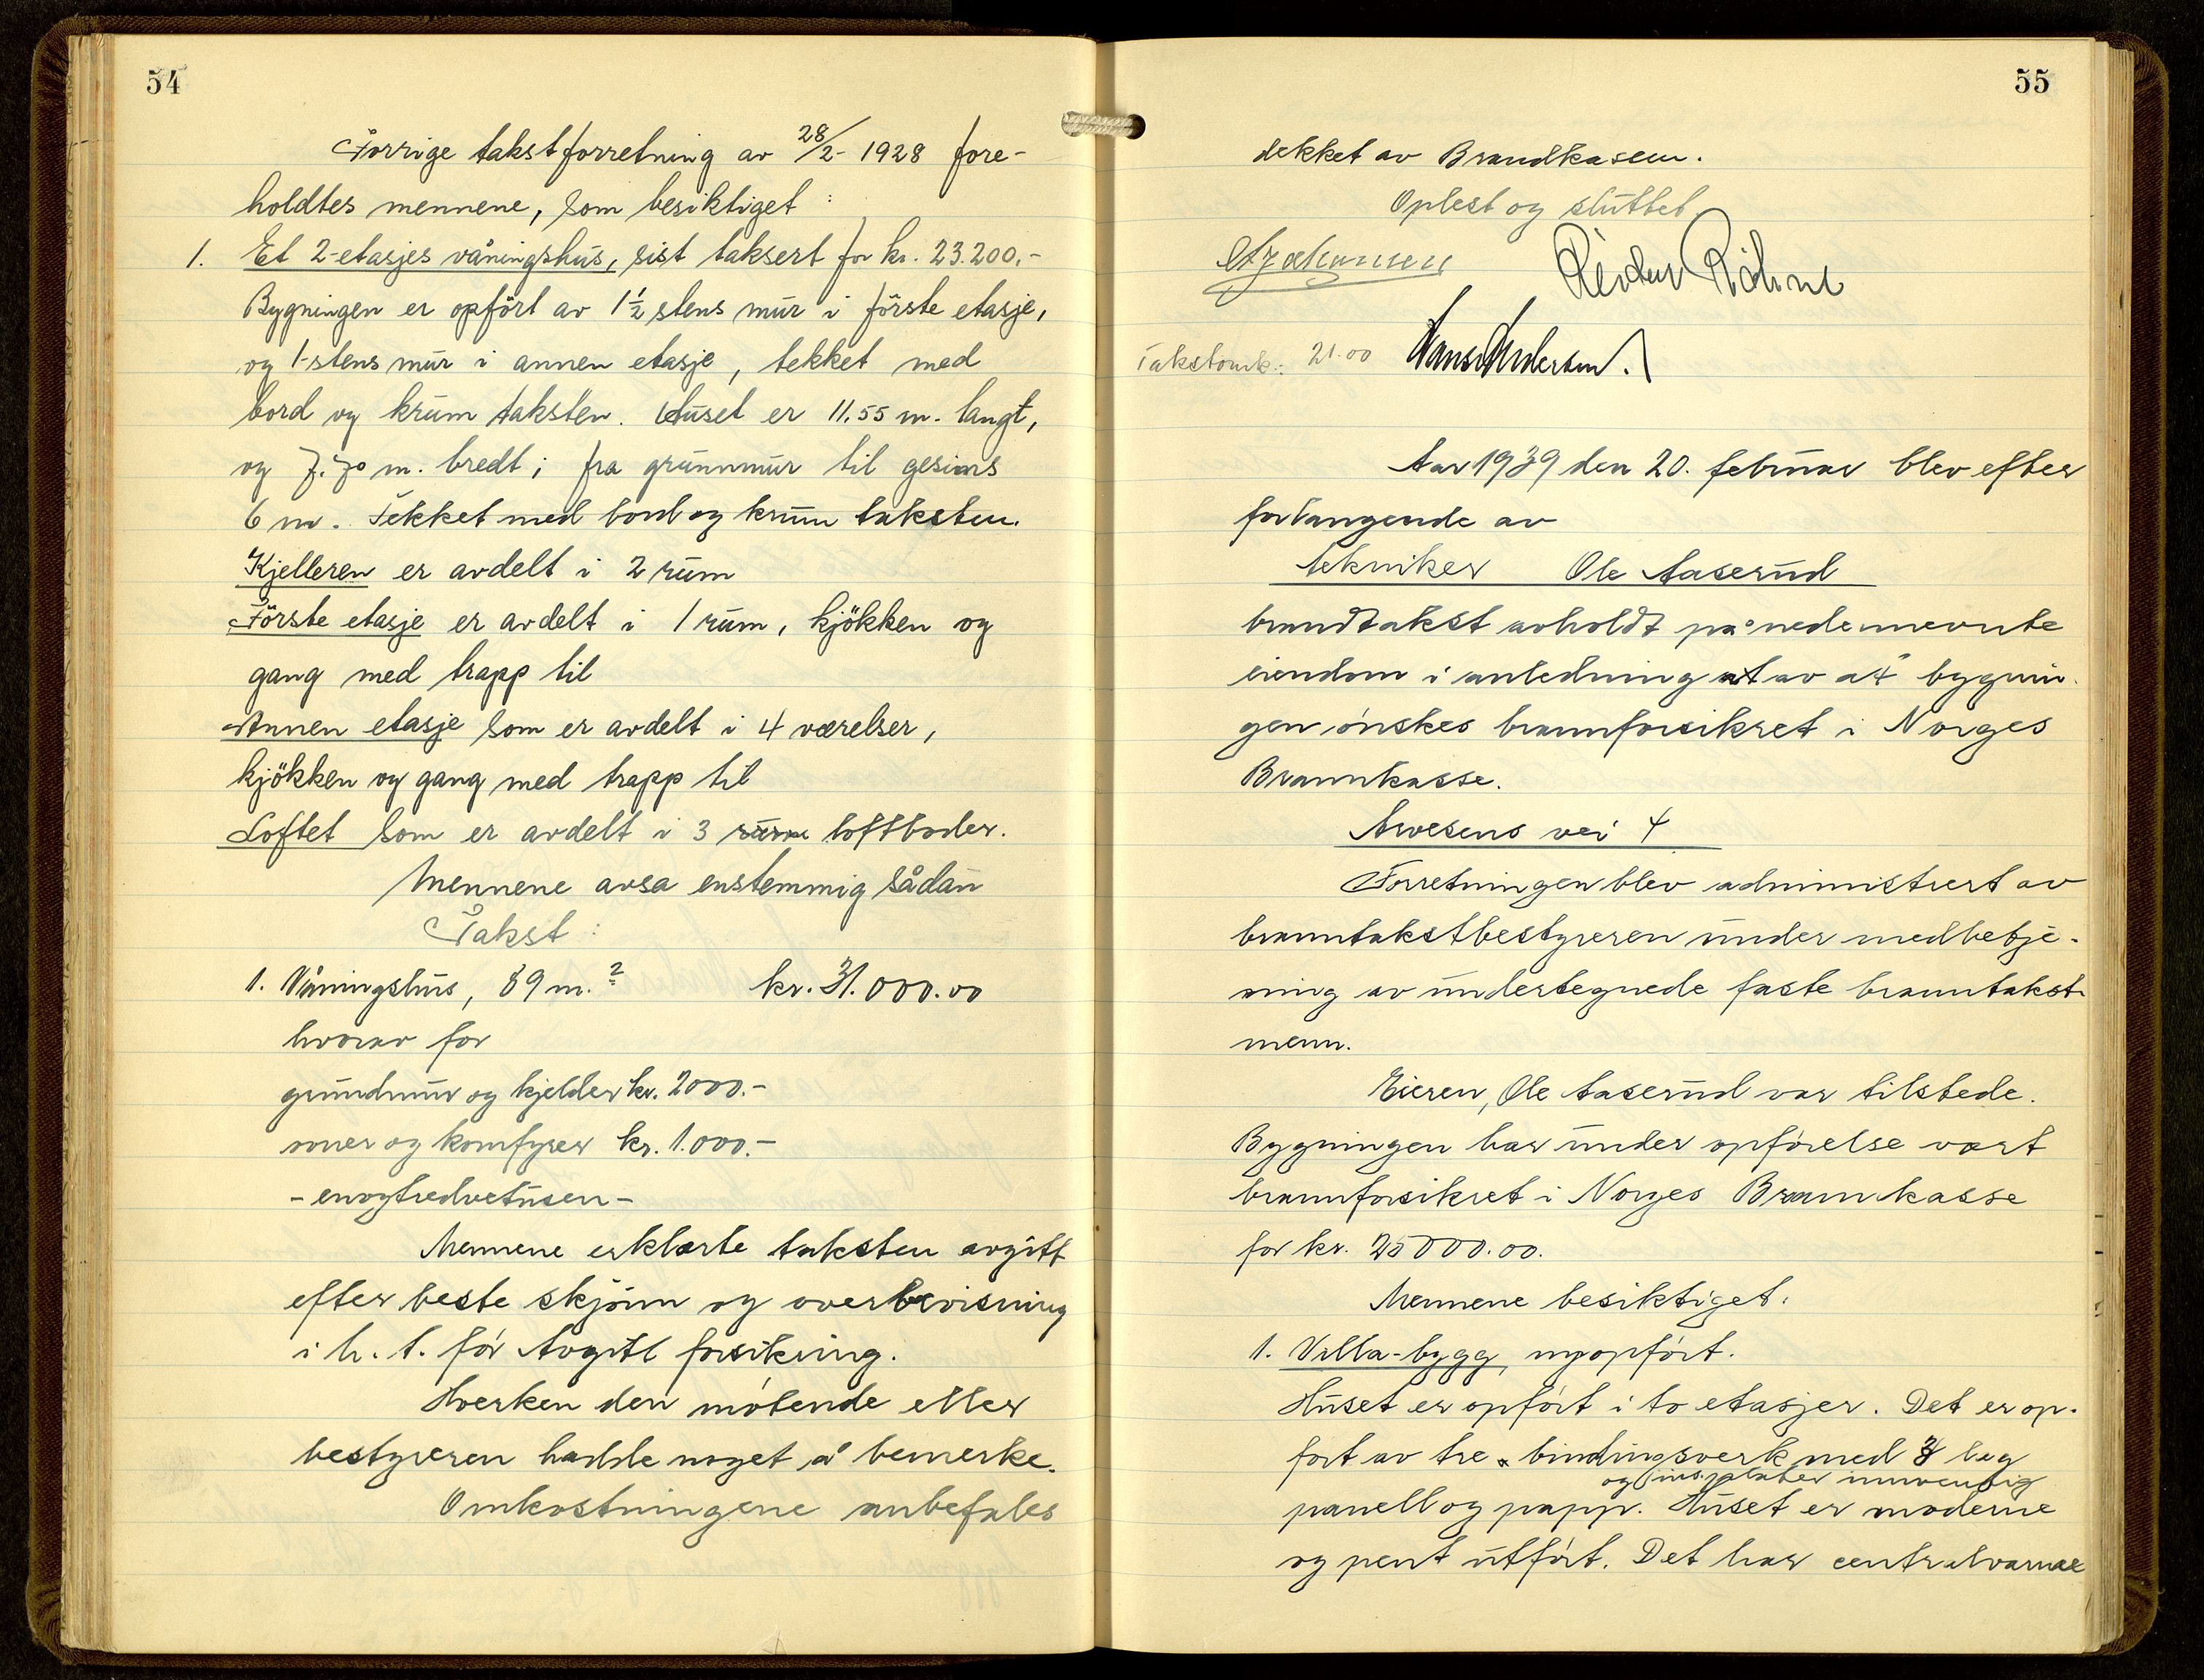 54
Förrige takstforretning av 28/2- 1928 fore-
holdtes mennene, som besiktiget :
1. Et 2-etasjes våningshus, sist taksert for kr. 23.200.-
Bygningen er opfört av 1½ stens mur i förste etasje,
og 1-stens mur i annen etasje, tekket med
bord og krum taksten. Huset er 11.55 m. langt,
og 7.70 m. bredt; fra grunnmur til gesims
6 m. Tekket med bord og krum taksten.
Kjelleren er avdelt i 2 rum
Förste etasje er avdelt i 1 rum, kjökken og
gang med trapp til
Annen etasje som er avdelt i 4 værelser,
kjökken og gang med trapp til
Loftet som er avdelt i 3 rum loftboder.
Mennene avsa enstemmig sådan
Takst :
1. Våningshus, 89 m.² kr. 31.000.00
hvorav for
grundmur og kjelder kr. 2000.-
ovner og komfyrer kr. 1.000.-
- enogtredvetusen -
Mennene erklærte taksten avgitt
efter beste skjønn og overbevisning
i h. t. før avgitt forsikring.
Hverken den møtende eller
bestyreren hadde noget å bemerke.
Omkostningene anbefales
55
dekket av Brandkassen.
Oplest og sluttet
Reidar
Takstomk.: 21.00 Hans Andersen.
Aar 1939 den 20. februar blev efter
forlangende av
tekniker Ole Aaserud
brandtakst avholdt på nedennevnte
eiendom i anledning at av at bygnin-
gen ønskes brannforsikret i Norges
Brannkasse.
Arvesens vei 4
Forretningen blev administrert av
branntakstbestyreren under medbetje-
ning av undertegnede faste branntakst-
menn.
Eieren, Ole Aaserud var tilstede.
Bygningen har under opførelse vært
brannforsikret i Norges Brannkasse
for kr. 25000.00.
Mennene besiktiget:
1. Villa-bygg, nyopført.
Huset er opført i to etasjer. Det er op-
ført av tre bindingsverk med 3 lag
og ins. plater innvendig
panell og papp. Huset er moderne
og pent utført. Det har centralvarme